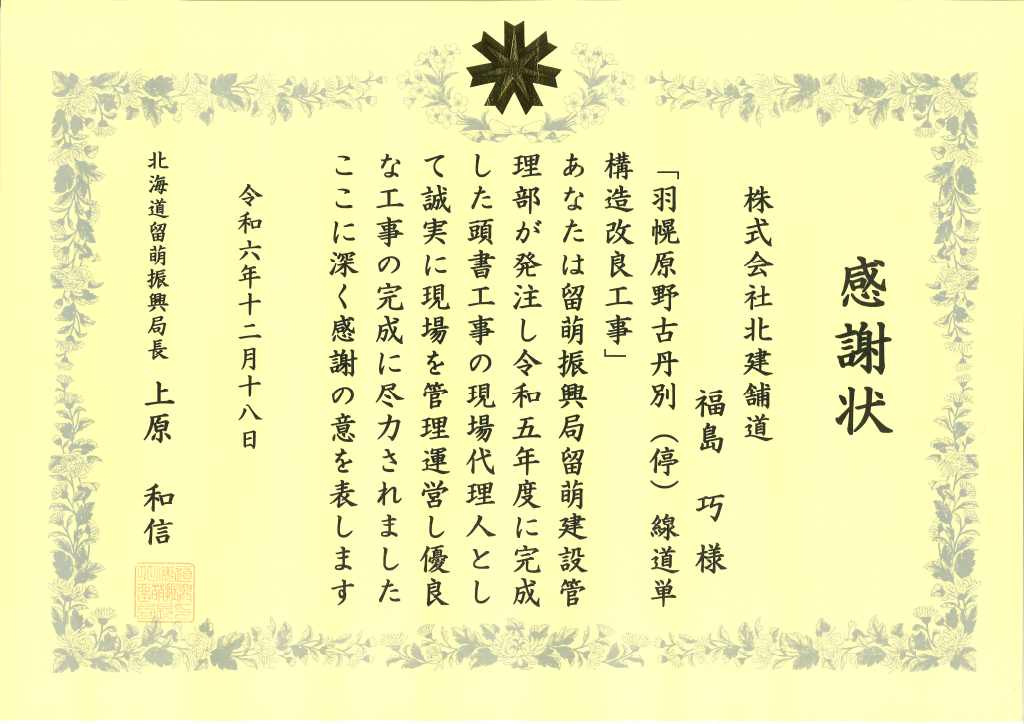 感謝状
株式会社北建舗道
福島 巧 様
「羽幌原野古丹別(停)線道単
構造改良工事」
あなたは留萌振興局留萌建設管
理部が発注し令和五年度に完成
した頭書工事の現場代理人とし
て誠実に現場を管理運営し優良
な工事の完成に尽力されました
ここに深く感謝の意を表します
令和六年十二月十八日
北海道留萌振興局長 上原 和信